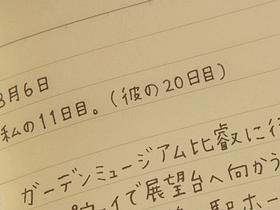 3月6日
私の11日目。(彼の20日目)
ガーデンミュージアム比叡に行
プウェイで展望台へ向かう